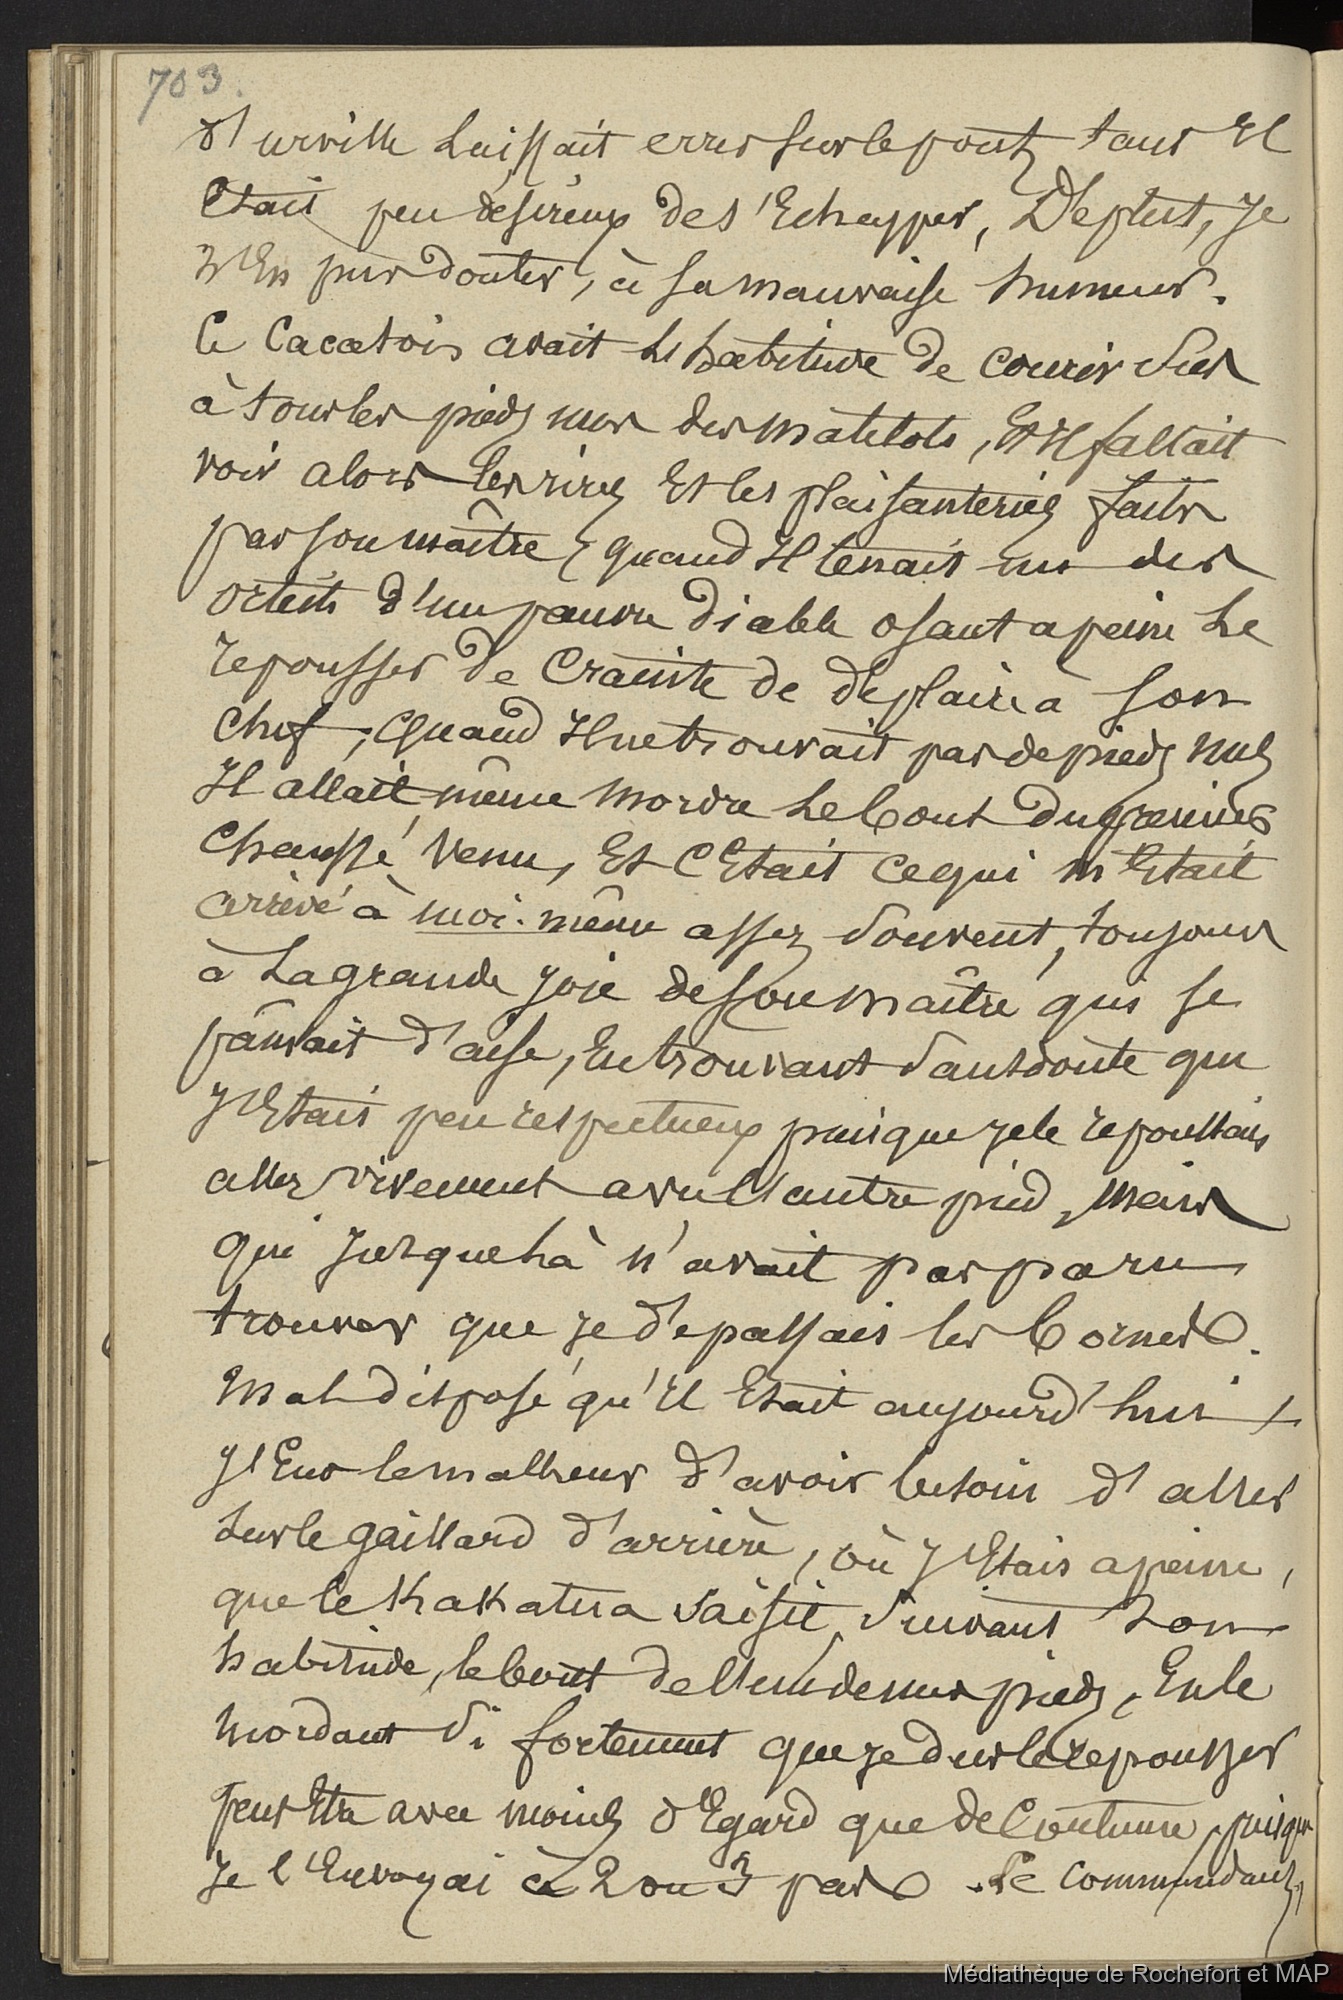 703.
d'urville laissait errer sur le pont, tant Il
Etait peu désireux de s'Echapper, Déplut, je
n'En puis douter, à sa mauvaise humeur.
Ce Cacatois avait l'habitude de courir sur
à tous les pieds nus des matelots, Et Il fallait
voir alors les rires Et les plaisanteries faites
par son maître, quand Il tenait un des
orteils d'un pauvre diable osant apeine le
repousser de Crainte de déplaire à son
chef, Quand Il ne trouvait pas de pieds nus
Il allait même mordre le bout du premier
Chaussé venu, Et C'Etait ce qui m'Etait
arrivé à moi-même assez souvent, toujours
à la grande joie de son maître qui se
pâmait d'aise, En trouvant sans doute que
j'Etais peu respectueux puisque je le repoussais
assez vivement avec l'autre pied, Mais
qui jusque là n'avait pas paru
trouver que je dépassais les bornes.
Mal disposé qu'Il Etait aujourd'hui
j'Eus le malheur d'avoir besoin d'aller
sur le gaillard d'arrière, où j'Etais apeine,
que le Kakatua saisit, suivant son
habitude, le bout de l'un de mes pieds, En le
mordant si fortement que je dus le repousser
peut Etre avec moins d'Egard que de Coutume, puisque
je l'Envoyai à 2 ou 3 pas. Le Commandant,
Médiathèque de Rochefort et MAP